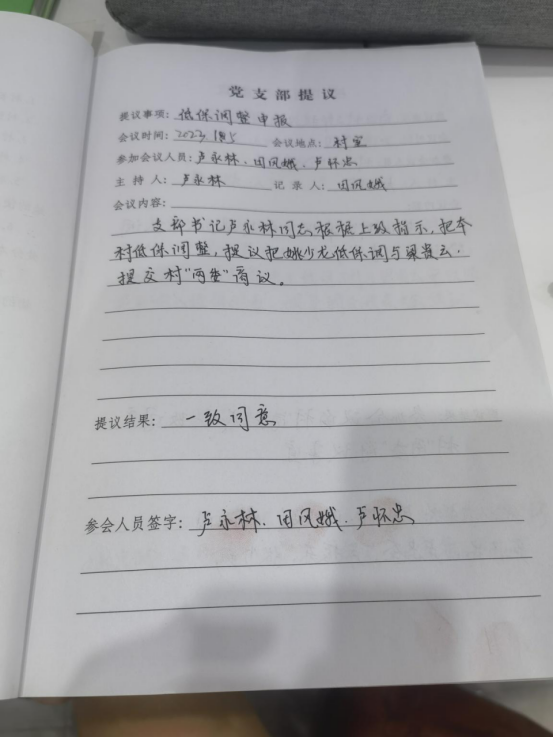 党支部提议
提议事项：低保调整申报
会议时间：2023 会议地点：村室
参加会议人员：卢永林、田凤娥、卢怀忠
主持人：卢永林 记录人：田凤娥
会议内容：
支部书记卢永林同志根据上级指示，把本
村低保调整，提议把姚少龙低保调与梁资云.
提交村“两委”商议。
提议结果：一致同意
参会人员签字：卢永林、田凤娥、卢怀忠